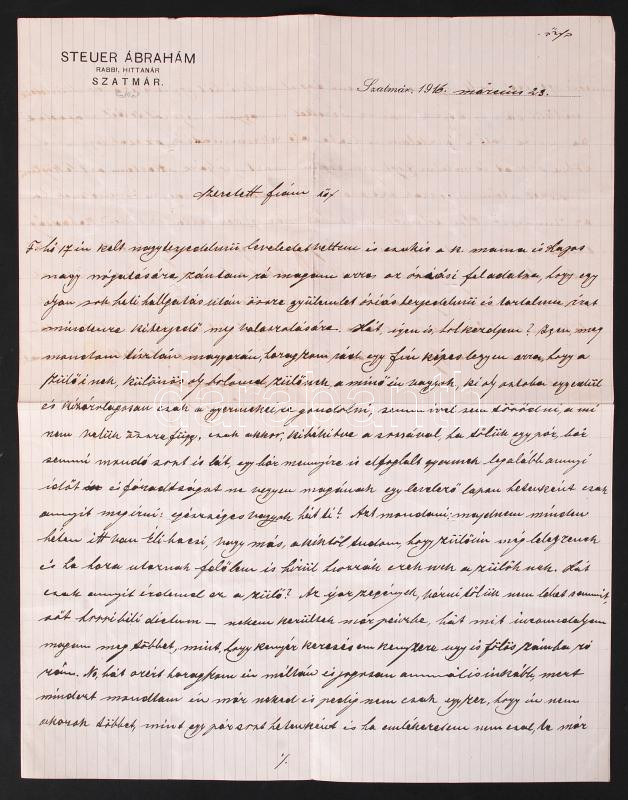 STEUER ÁBRAHÁM
RABBI, HITTANÁR
SZATMÁR.
Szatmár, 1916. március 23.
Szeretett fiam
F. hó 17 én kelt nagyterjedelmü leveledet vettem és csakis a k. mama és Lajos
nagy nógatására szántam rá magam arra az óriási feladatra, hogy egy
olyan sok heti hallgatás után össze gyülemlet óriás terjedelmü és tartalmu
mindenre kiterjedő meg valaszolására. Hát, igen is, hol kezdjem? Igen, meg
mondom tisztán magyarán, haragszom, hogy egy fiu képes legyen arra, hogy a
szülőinek, különös oly bolond szülőknek a minő én vagyok, ki oly ostoba egyedül
és kizárolagosan csak a gyermekeire gondolni, semmivel sem törődni, a mi
nem velük összefügg, csak akkor kibékitve a sorsával, ha tőlük egy pár, bár
semmit mondó sort is lát, egy bár mennyire is elfoglalt gyermek legalább annyi
időt és fáradtságot ne vegyen magának egy levelező lapon hetenként csak
annyit megirni: egészséges vagyok hát ti? Azt mondani: majdnem minden
héten itt van Éli bácsi, vagy más, a kiktől tudom, hogy szülőim még lélegzenek
és ha haza utaznak felőlem is hirül hozzák ezek nek a szülők nek. Hát
csak annyit érdemel ez a szülő? Az igaz szegények, várni tőlük nem lehet semmit,
sőt horribili dictum — nekem kerültek már pénzbe, hát mit
magam meg többet, mint, hogy kenyér keresésem kemszere ugy is fölös számba ró
rám. No, hát azért haragszom én méltán és jogosan annál is inkább, mert
mindezt mondtam én már neked és pedig nem csak egyszer, hogy én nem
akarok többet, mint egy pár sort hetenként és ha emlékezetem nem csal, te már
./.